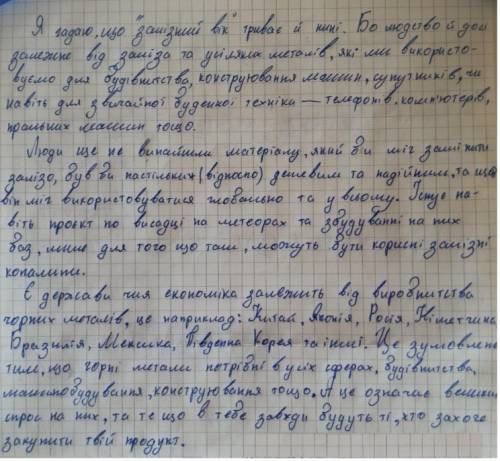 Я гадаю, що "залізний вік" триває й нині. Бо людство й досі
залежне від заліза та усіляких металів, які ми використо-
вуємо для будівництва, конструювання машин, супутників, чи
навіть для звичайної буденної техніки — телефонів, комп'ютерів,
пральних машин тощо.
Люди ще не винайшли матеріалу, який би міг замінити
залізо, був би настільких (відносно) дешевим та надійним, та щоб
він міг використовуватися глобально та у всьому. Існує на-
віть проєкт по висадці на метеорах та збудуванні на них
баз, лише для того що там, можуть бути корисні залізні
копалини.
Є держави чия економіка залежить від виробництва
чорних металів, це наприклад: Китай, Японія, Росія, Німеччина
Бразилія, Мексика, Південна Корея та інші. Це зумовлено
тим, що чорні метали потрібні в усіх сферах, будівництва,
машинобудування, конструювання тощо. А це означає великий
спрос на них, та те що в тебе завжди будуть ті, хто захоче
закупити твій продукт.